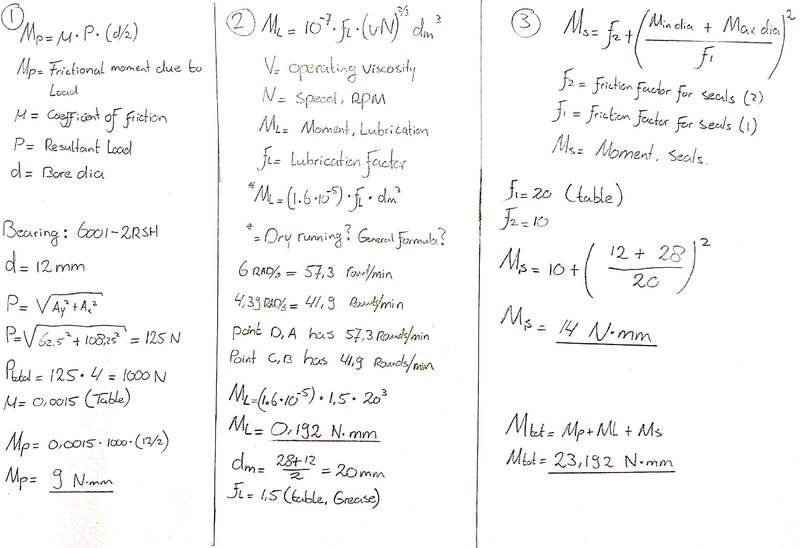 ①
Mp = μ · P · (d/2)
Mp = Frictional moment due to
Load
μ = Coefficient of friction
P = Resultant Load
d = Bore dia
Bearing: 6001-2RSH
d = 12 mm
P = √(Ay² + Ax²)
P = √(62.5² + 108,25²) = 125 N
Ptotal = 125 · 4 = 1000 N
μ = 0,0015 (Table)
Mp = 0,0015 · 1000 · (12/2)
Mp = 9 N·mm
②
ML = 10⁻⁷ · fL · (υN)^2/3 dm³
V = operating Viscosity
N = Speed, RPM
ML = Moment, Lubrication
fL = Lubrication Factor
*ML = (1.6·10⁻⁵) · fL · dm³
* = Dry running? General formula?
6 RAD/s = 57,3 round/min
4,39 RAD/s = 41,9 Rounds/min
point D, A has 57,3 Rounds/min
Point C, B has 41,9 Rounds/min
ML = (1.6·10⁻⁵) · 1,5 · 20³
ML = 0,192 N·mm
dm = (28+12)/2 = 20 mm
fL = 1,5 (table, Grease)
③
Ms = f2 + ((Min dia + Max dia)/f1)²
f2 = friction factor for seals (2)
f1 = friction factor for seals (1)
Ms = Moment, seals.
f1 = 20 (table)
f2 = 10
Ms = 10 + ((12 + 28)/20)²
Ms = 14 N·mm
Mtot = Mp + ML + Ms
Mtot = 23,192 N·mm